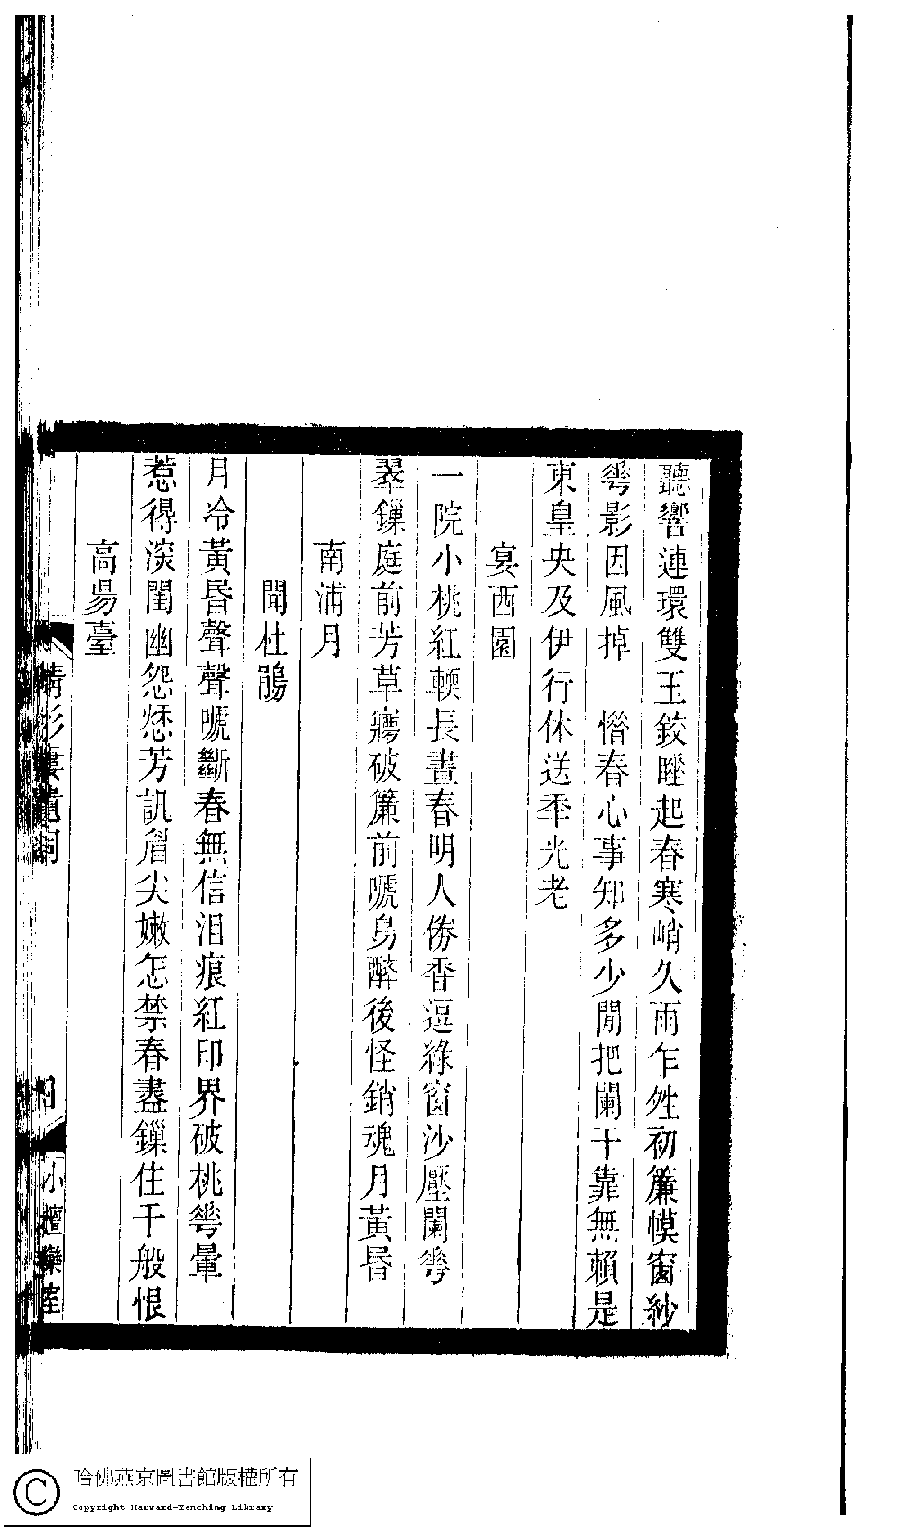 聽響連環雙玉鉸睡起春寒峭久雨乍晴初簾幙窗紗
雩影因風掉　惜春心事知多少閒把闌干靠無賴是
東皇央及伊行休送秊光老
宴西園
一院小桃紅輭長晝春明人倦香逗綠窗沙壓闌雩
翠鏁庭前芳草癟破簾前嗁鳥醉後怪銷魂月黃昏
南浦月
聞杜鵑
月冷黃昏聲聲嗁斷春無信泪痕紅印界破桃雩暈
惹得深閨幽怨愁芳訊眉尖嫩怎禁春盡鏁住千般恨
高昜臺
小檀欒室
哈佛燕京圖書館版權所有
Copyright Harvard-Yenching Library